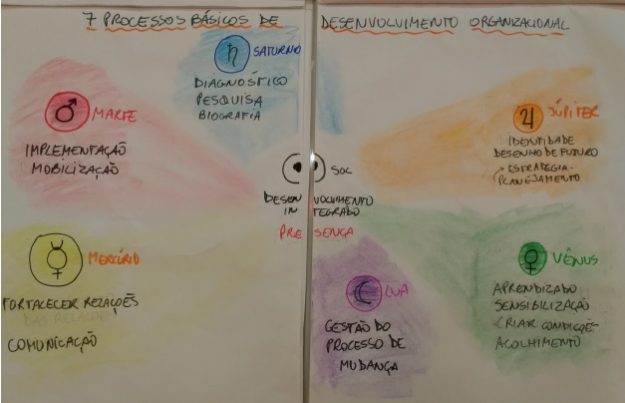 7 PROCESSOS BÁSICOS DE DESENVOLVIMENTO ORGANIZACIONAL
SATURNO
DIAGNÓSTICO
PESQUISA
BIOGRAFIA
MARTE
IMPLEMENTAÇÃO
MOBILIZAÇÃO
JÚPITER
IDENTIDADE
DESENHO DE FUTURO
ESTRATÉGIA-
PLANEJAMENTO
SOL
DESENVOLVIMENTO
INTEGRADO
PRESENÇA
MERCÚRIO
FORTALECER RELAÇÕES
DAS RELAÇÕES
COMUNICAÇÃO
LUA
GESTÃO DO
PROCESSO DE
MUDANÇA
VÊNUS
APRENDIZADO
SENSIBILIZAÇÃO
CRIAR CONDIÇÕES-
ACOLHIMENTO